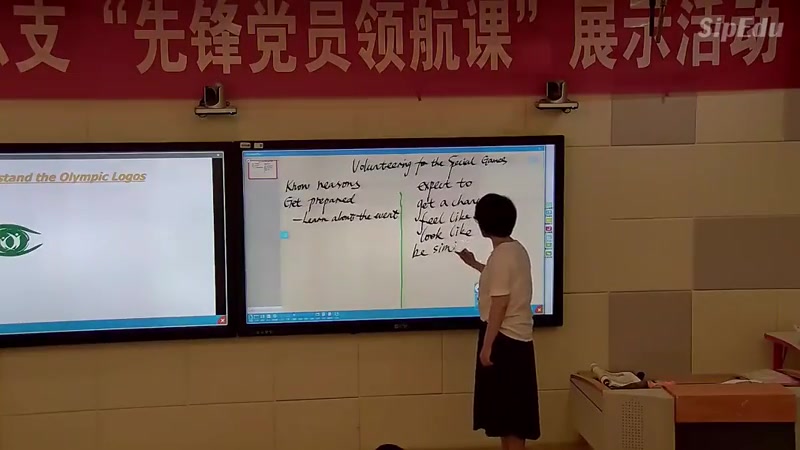 支“先锋党员领航课”展示活动
SipEdu
stand the Olympic Logos
Volunteering for the Special Games
Know reasons
Get prepared
—Learn about the event
expect to
get a chan
feel like
look like
be simi